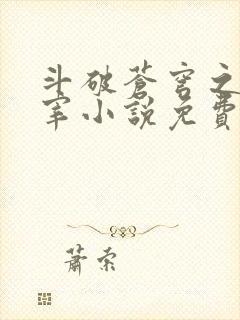 斗破蒼穹之
宰小說免費
蕭索